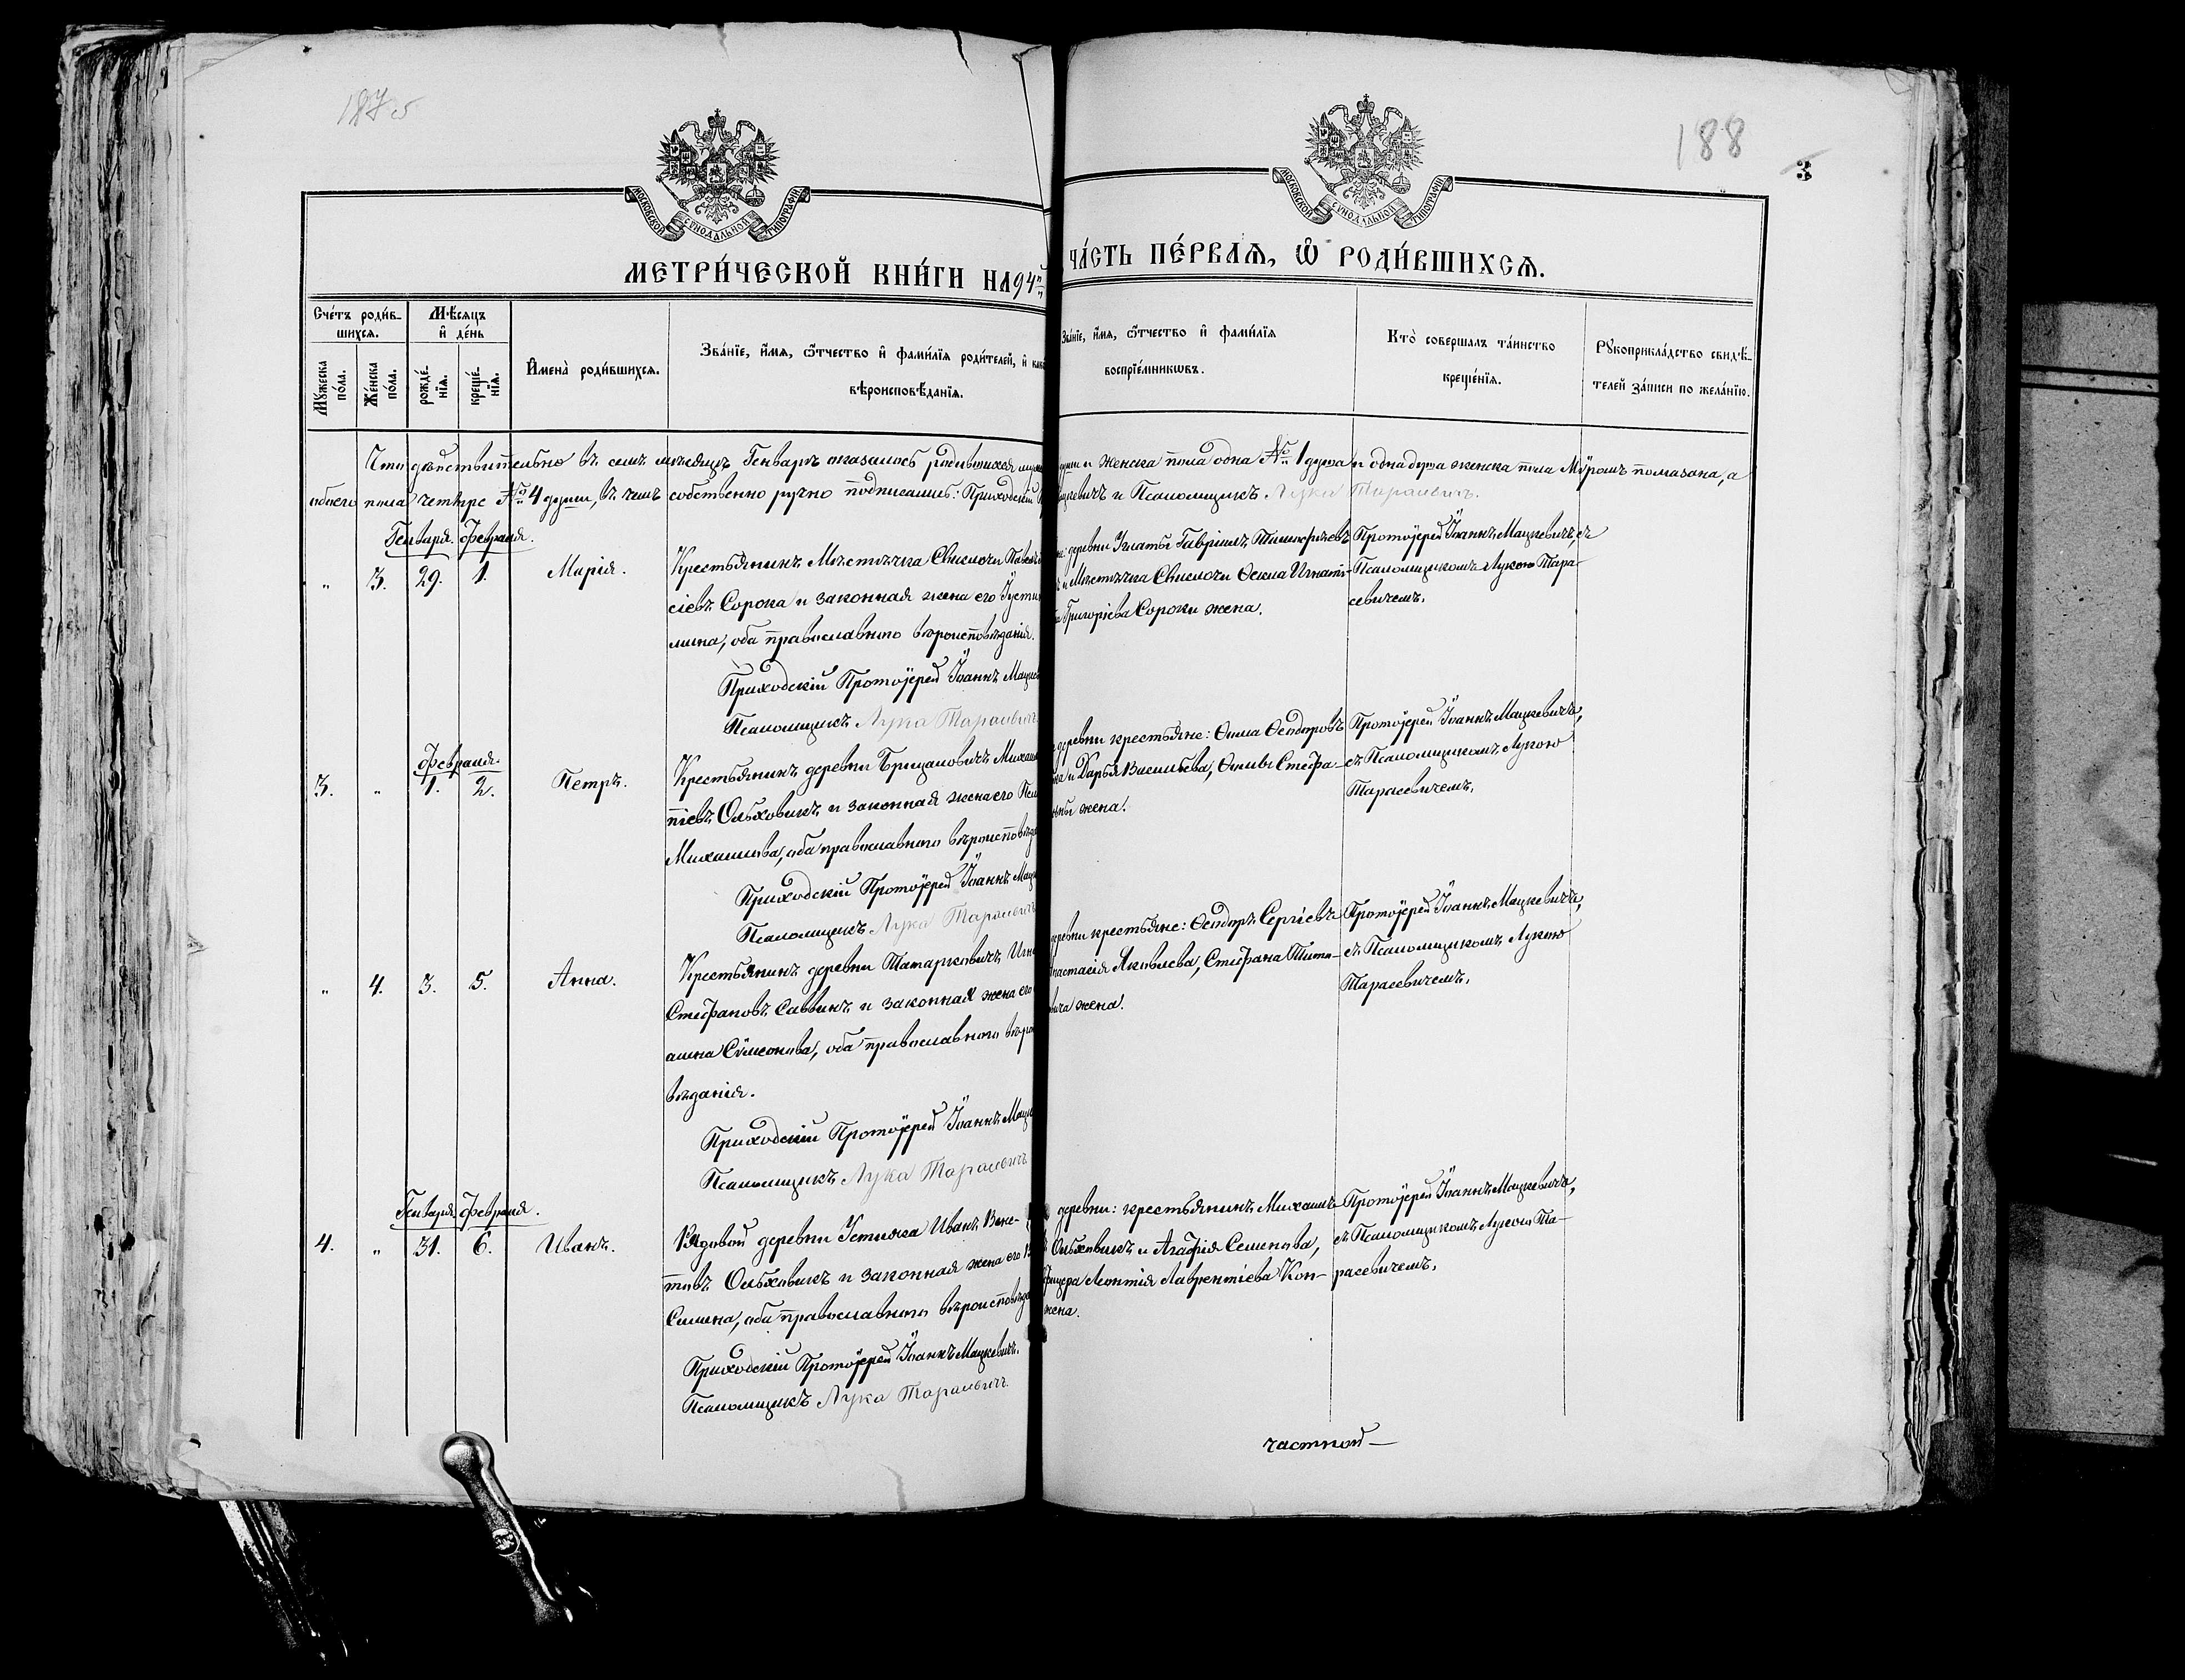 187 об
188
3
МОСКОВСКОЙ СѴНОДАЛЬНОЙ ТИПОГРАФІИ
МОСКОВСКОЙ СѴНОДАЛЬНОЙ ТИПОГРАФІИ
МЕТРИ́ЧЕСКОЙ КНИ́ГИ НА 94й
ЧА́СТЬ ПЕ́РВАѦ, Ѡ҆ РОДИ́ВШИХСѦ.
Сче́тъ роди́вшихсѧ.
Мѣ́сѧцъ и҆ де́нь
Мꙋ́жеска по́ла.
Же́нска по́ла.
рожде́нїѧ.
креще́нїѧ.
И҆мена̀ роди́вшихсѧ.
Зва́нїе, и҆́мѧ, ѻ҆́тчество и҆ фами́лїѧ роди́телей, и҆
вѣроисповѣ́данїѧ.
Зва́нїе, и҆́мѧ, ѻ҆́тчество и҆ фами́лїѧ
воспрїе́мникѡвъ.
Кто̀ соверша́лъ та́инство
креще́нїѧ.
Рꙋкоприкла́дство свидѣ́телей за́писи по жела́нїю.
Что дѣйствительно въ семъ мѣсяцѣ Генварѣ оказалось родившихся
души и женска пола одна № 1 душа и одна душа женска пола Мѵромъ помазана, а
обоего пола четыре № 4 души, въ чемъ собственно ручно подписались: Приходскій
и Псаломщикъ Лука Тарасевичъ.
Генваря. Февраля.
" 3. 29. 1. Марія.
Крестьянинъ Мѣстечка Свислочи Павелъ
сіевъ Сорока и законная жена его Іусти
мина, оба православнаго вѣроисповѣданія.
Приходскій Протоіерей Іоаннъ
Псаломщикъ Лука Тарасевичъ
деревни Гавріилъ
и Мѣстечка Свислочи Ѳекла Игнаті-
Григоріева Сороки жена.
Протоіерей Іоаннъ Мацкевичъ, съ
Псаломщикомъ Лукою Тара-
севичемъ.
Февраля.
3. " 1. 2. Петръ.
Крестьянинъ деревни Брицаловичъ
тіевъ Ольховикъ и законная жена его
Михаилова, оба православнаго
Приходскій Протоіерей Іоаннъ
Псаломщикъ Лука Тарасевичъ
деревни крестьяне: Ѳома Ѳеодоровъ
и Дарья Васильева, Ѳомы Стефа-
жена.
Протоіерей Іоаннъ Мацкевичъ,
съ Псаломщикомъ Лукою
Тарасевичемъ.
" 4. 3. 5. Анна.
Крестьянинъ деревни Татарковичъ
Стефановъ Саввинъ и законная жена его
Сѵмеонова, оба православнаго
вѣданія.
Приходскій Протоіерей Іоаннъ
Псаломщикъ Лука Тарасевичъ
крестьяне: Ѳеодоръ Сергіевъ
Яковлева, Стефана Тито-
жена.
Протоіерей Іоаннъ Мацкевичъ,
съ Псаломщикомъ Лукою
Тарасевичемъ.
Генваря. Февраля.
4. " 31. 6. Иванъ.
Рядовой деревни Устижа Иванъ
Ольховикъ и законная жена его
оба православнаго
Приходскій Протоіерей Іоаннъ Мацкевичъ.
Псаломщикъ Лука Тарасевичъ
деревни: крестьянинъ Михаилъ
Ольховикъ и Агафія Семенова,
Леонтія Лаврентіева Кон-
жена.
Протоіерей Іоаннъ Мацкевичъ,
съ Псаломщикомъ Лукою Та-
расевичемъ.
частной